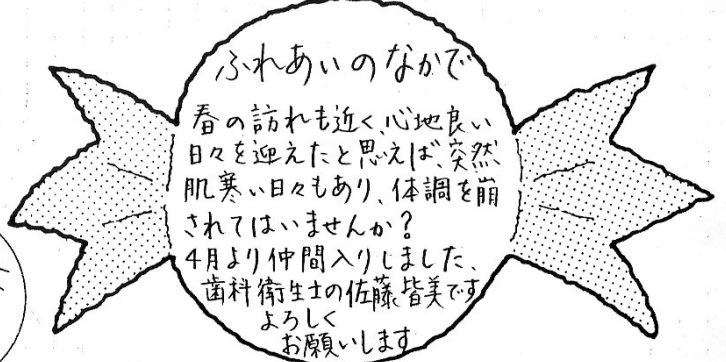 ふれあいのなかで
春の訪れも近く、心地良い
日々を迎えたと思えば、突然
肌寒い日々もあり、体調を崩
されてはいませんか？
4月より仲間入りしました、
歯科衛生士の佐藤皆美です
よろしく
お願いします